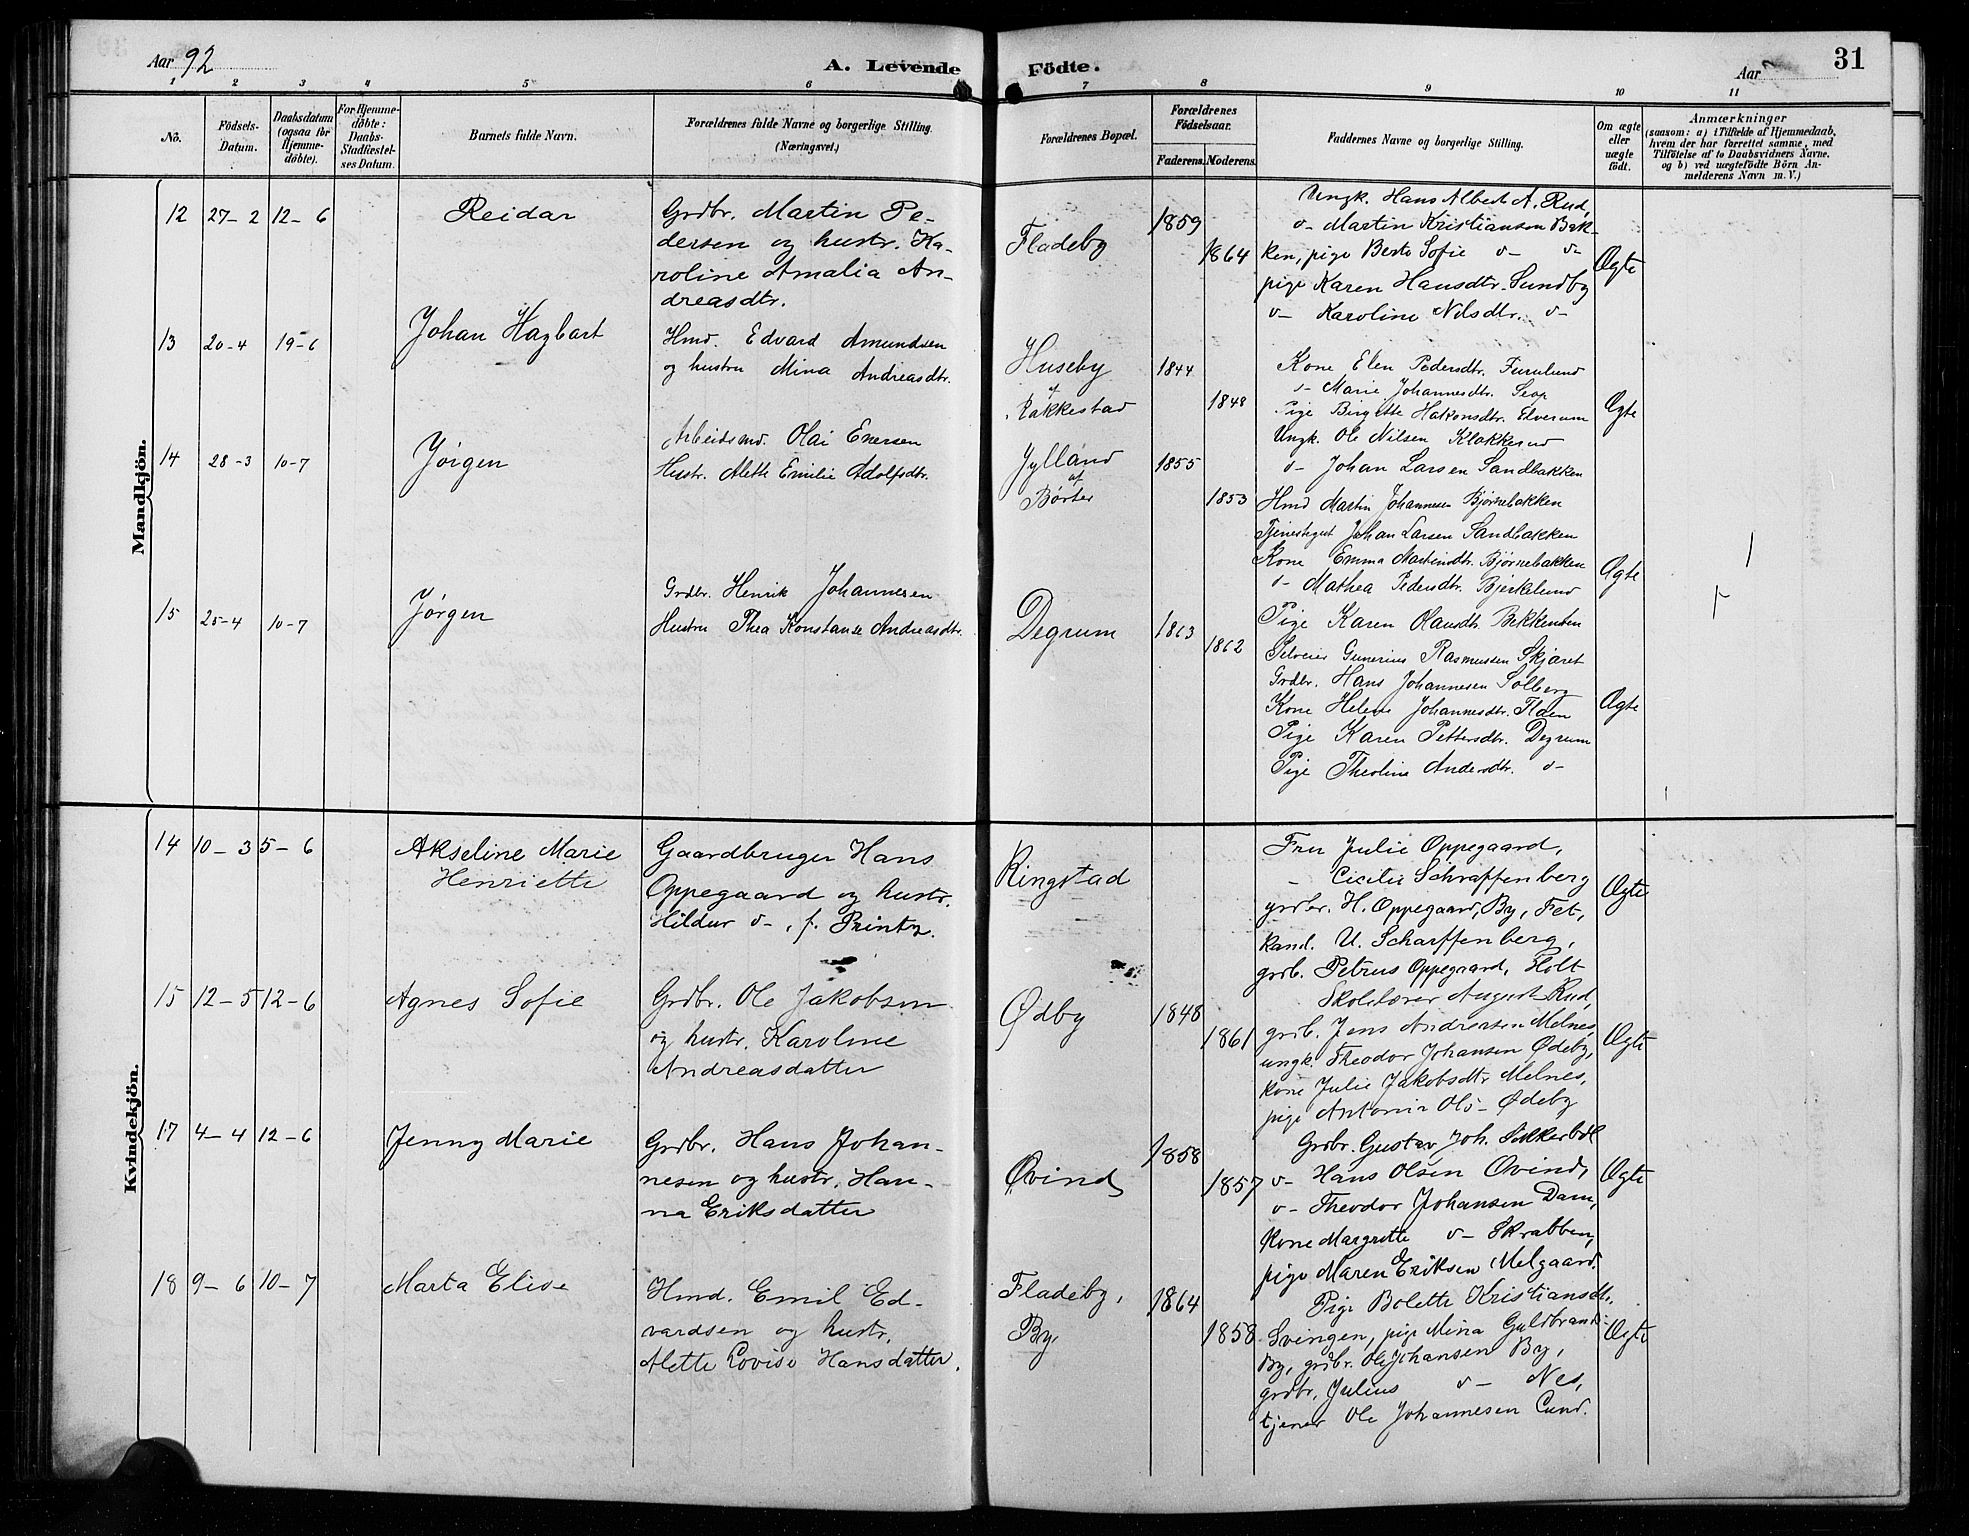 Aar 92
A. Levende Födte.
Aar
31
1 2 3 4 5 6 7 8 9 10 11
No.
Födsels-Datum.
Daabsdatum (ogsaa for Hjemme-döbte).
For Hjemme-döbte: Daabs-Stadfæstel-ses Datum.
Barnets fulde Navn.
Forældrenes fulde Navne og borgerlige Stilling.
(Næringsvei.)
Forældrenes Bopæl.
Forældrenes Födselsaar.
Faderens. Moderens.
Faddernes Navne og borgerlige Stilling.
Om ægte eller uægte födt.
Anmærkninger
(saasom: a) i Tilfælde af Hjemmedaab,
hvem der har forrettet samme, med
Tilföielse af to Daabsvidners Navne.
og b) ved uægtefödte Börn An-
melderens Navn m. V.)
Mandkjön.
12 27-2 12-6 Reidar
Grdbr. Martin Pe-
dersen og hustr. Ka-
roline Amalia An-
dreasdtr.
Fladeby
1859
1864
Ungk. Hans Albert A. Rud,
v- Martin Kristiansen Bak-
ken, pige Berte Sofie v- v-
pige Karen Hansdtr. Sundby
v- Karoline Nilsdtr. v-
Ægte
13 20-4 19-6 Johan Hagbart
Hmd. Edvard Amundsen
og hustru Mina Andreasdtr.
Huseby
af
Rakkestad
1844
1848
Kone Elen Pedersdtr. Furulund
v- Marie Johannesdtr. Seop
Pige Birgitte Hakonsdtr. Elverum
Ungk. Ole Nilsen Klokkerud
v- Johan Larsen Sandbakken
Ægte
14 28-3 10-7 Jörgen
Arbeidsmd. Olai Enersen
Hustr. Alette Emilie Adolfsdtr.
Jylland
af
Börter
1855
1853
Hmd Martin Johannesen Bjørnebakken
Tjenestegut Johan Larsen Sandbakken
Kone Emma Martinsdtr. Bjørnebakken
v- Mathea Pedersdtr. Bjerkelund
Pige Karen Olausdtr. Bekkensten
Ægte
15 25-4 10-7 Jørgen
Grdbr. Henrik Johannesen
Hustru Thea Konstanse Andreasdtr.
Degrum
1863
1862
Selveier Gunerius Rasmussen Skjæret
Grdbr. Hans Johannesen Solberg
Kone Helene Johannesdtr. Flaen
Pige Karen Pettersdtr. Degrum
Pige Theoline Andersdtr. v-
Ægte
Kvindekjön.
14 10-3 5-6 Akseline Marie
Henriette
Gaardbruger Hans
Oppegaard og hustr.
Hildur v-, f. Printz.
Ringstad
Fru Julie Oppegaard,
- Cicilie Schraffenberg
grdbr. H. Oppegaard, By, Fet,
kand. U. Scharffenberg,
grdb. Petrus Oppegaard, Holt
Ægte
15 12-5 12-6 Agnes Sofie
Grdbr. Ole Jakobsen
og hustr. Karoline
Andreasdatter
Ødby
1848
1861
Skolelærer August Rud,
grdb. Jens Andersen Melnes,
ungk. Theodor Johansen Ødeby,
kone Julie Jakobsdtr Melnes,
pige Antonie Ols- Ødeby
Ægte
17 4-4 12-6 Jenny Marie
Grdbr. Hans Johan-
nesen og hustr. Han-
na Eriksdatter
Øvind
1858
1857
Grdbr. Gustav Joh. Sikkerböl
v- Hans Olsen Øvind,
v- Theodor Johansen Dam,
kone Margrette v- Skrabben,
pige Maren Eriksen Melgaard.
Ægte
18 9-6 10-7 Marta Elise
Hmd. Emil Ed-
vardsen og hustr.
Alette Lovise Hansdatter.
Fladeby,
By,
1864
1858
Pige Bolette Kristiansdt.
Svingen, pige Mina Guldbrands
By, grdbr. Ole Johansen By,
grdbr. Julius v- Nes,
tjener Ole Johannesen Lund.
Ægte